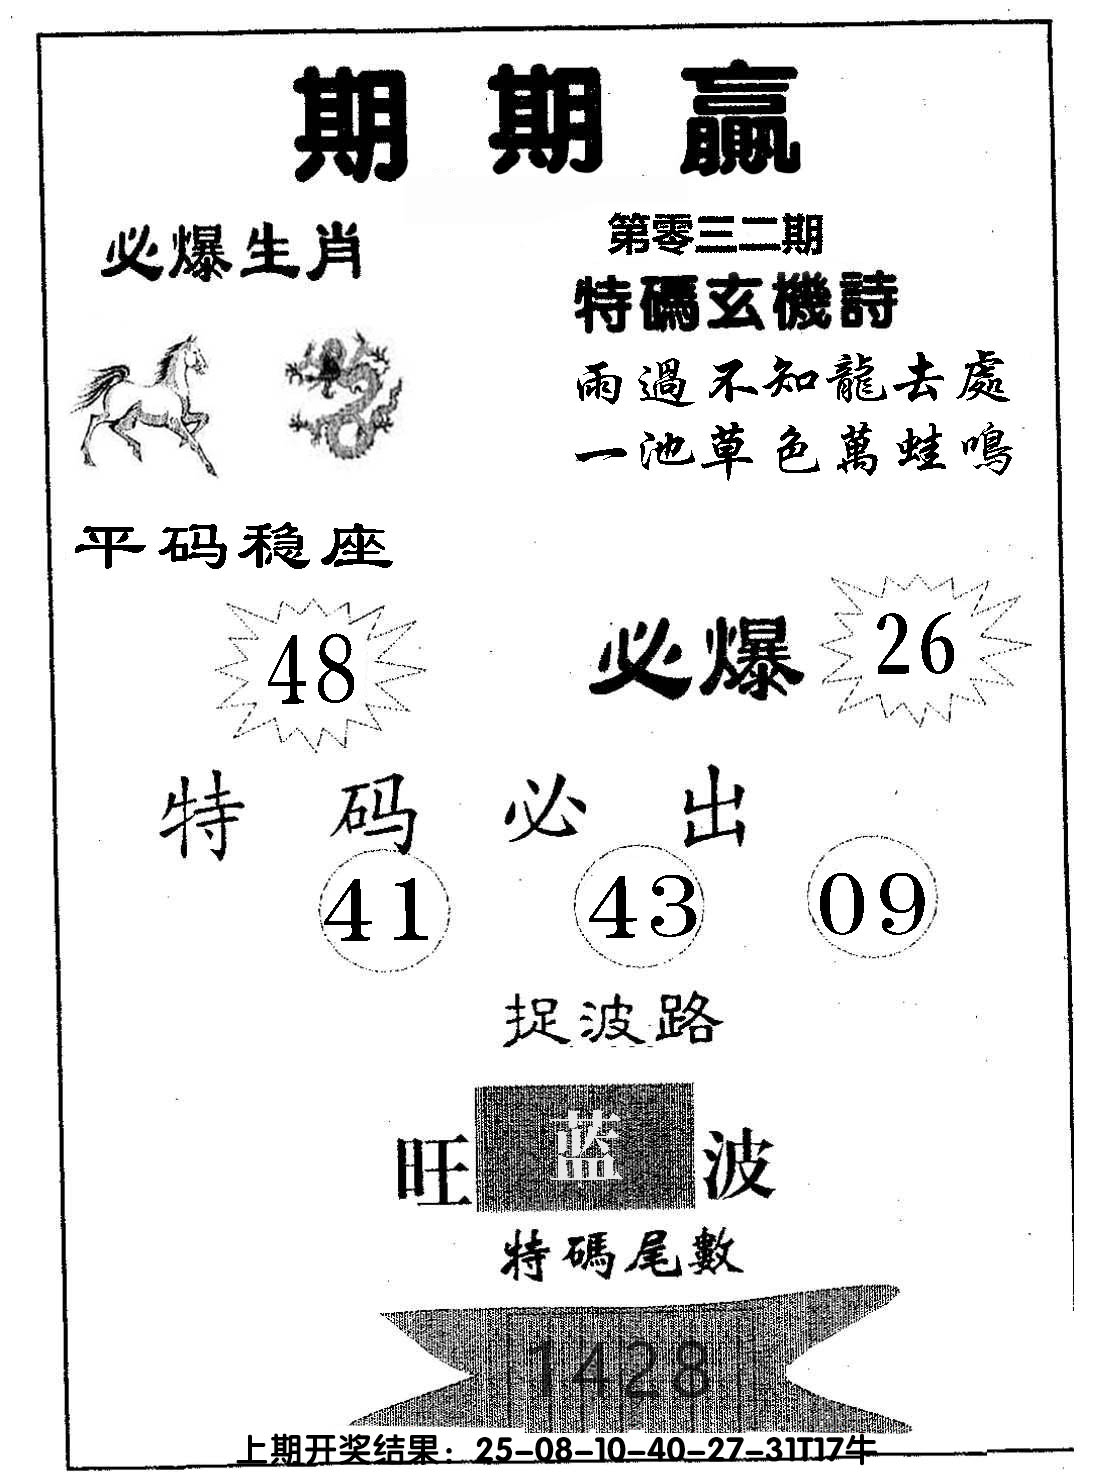 期期赢
必爆生肖
第零三二期
特碼玄機詩
雨過不知龍去處
一池草色萬蛙鳴
平码稳座
48
必爆
26
特码必出
41
43
09
捉波路
旺蓝波
特碼尾數
1428
上期开奖结果：25-08-10-40-27-31T17牛